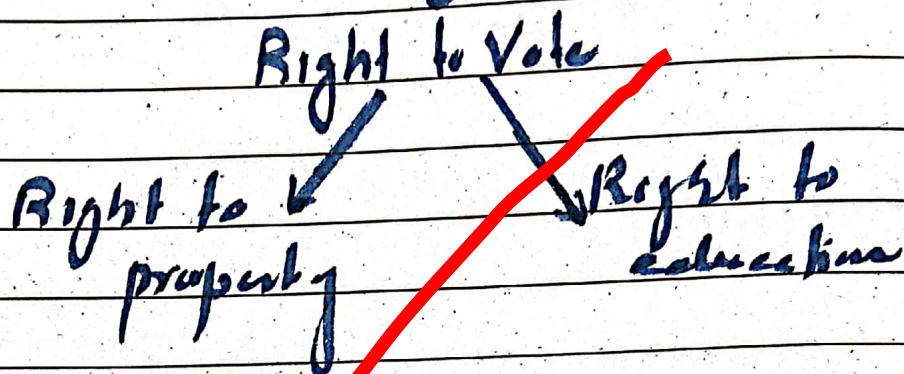 Right to Vote
Right to
property
Right to
education